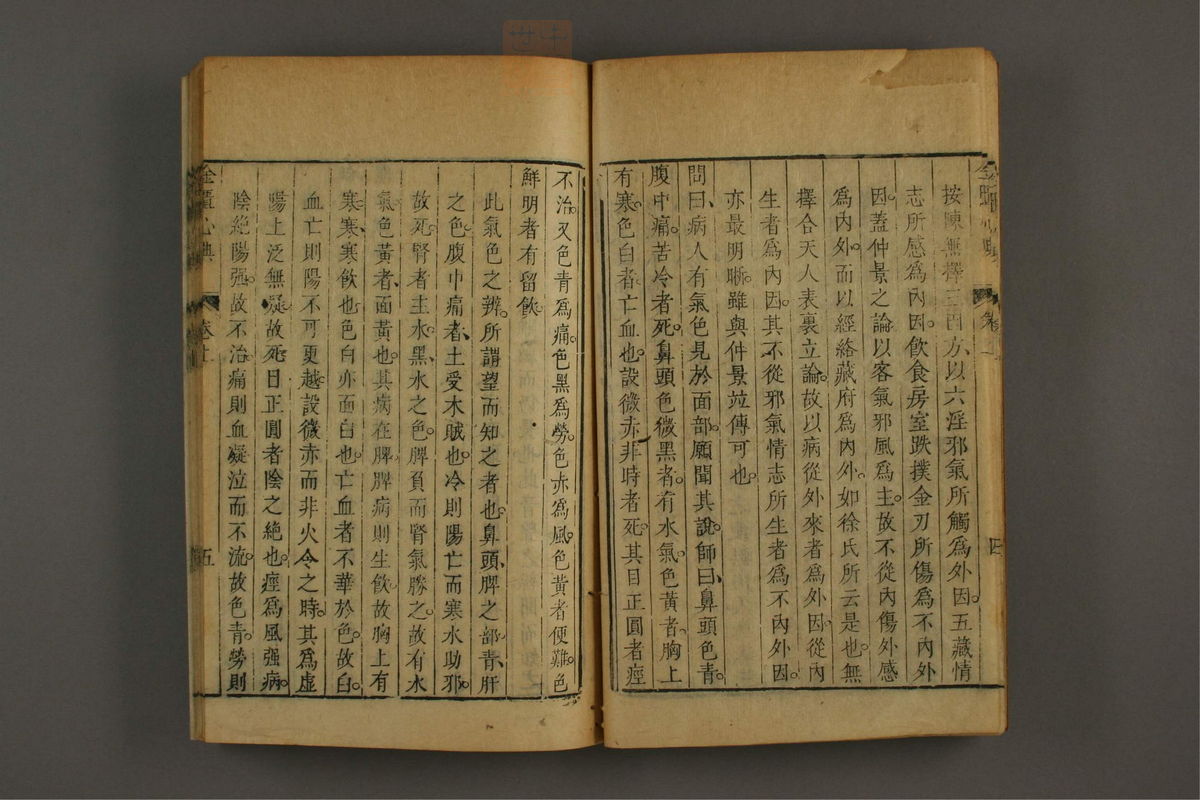 金匱心典
按陳無擇三因方以六淫邪氣所觸爲外因五藏情
志所感爲內因飲食房室跌撲金刃所傷爲不內外
因蓋仲景之論以客氣邪風爲主故不從內傷外感
爲內外而以經絡藏府爲內外如徐氏所云是也無
擇合天人表裏立論故以病從外來者爲外因從內
生者爲內因其不從邪氣情志所生者爲不內外因
亦最明晰雖與仲景竝傳可也
問曰病人有氣色見於面部願聞其說師曰鼻頭色青
腹中痛苦冷者死鼻頭色微黑者有水氣色黃者胸上
有寒色白者亡血也設微赤非時者死其目正圓者痙
四
不治又色青爲痛色黑爲勞色赤爲風色黃者便難色
鮮明者有留飲
此氣色之辨所謂望而知之者也鼻頭脾之部青肝
之色腹中痛者土受木賊也冷則陽亡而寒水助邪
故死腎者主水黑水之色脾負而腎氣勝之故有水
氣色黃者面黃也其病在脾脾病則生飲故胸上有
寒寒寒飲也色白亦面白也亡血者不華於色故白
血亡則陽不可更越設微赤而非火令之時其爲虛
陽上泛無疑故死目正圓者陰之絶也痙爲風强病
陰絶陽强故不治痛則血凝泣而不流故色青勞則
金匱心典
卷上
五